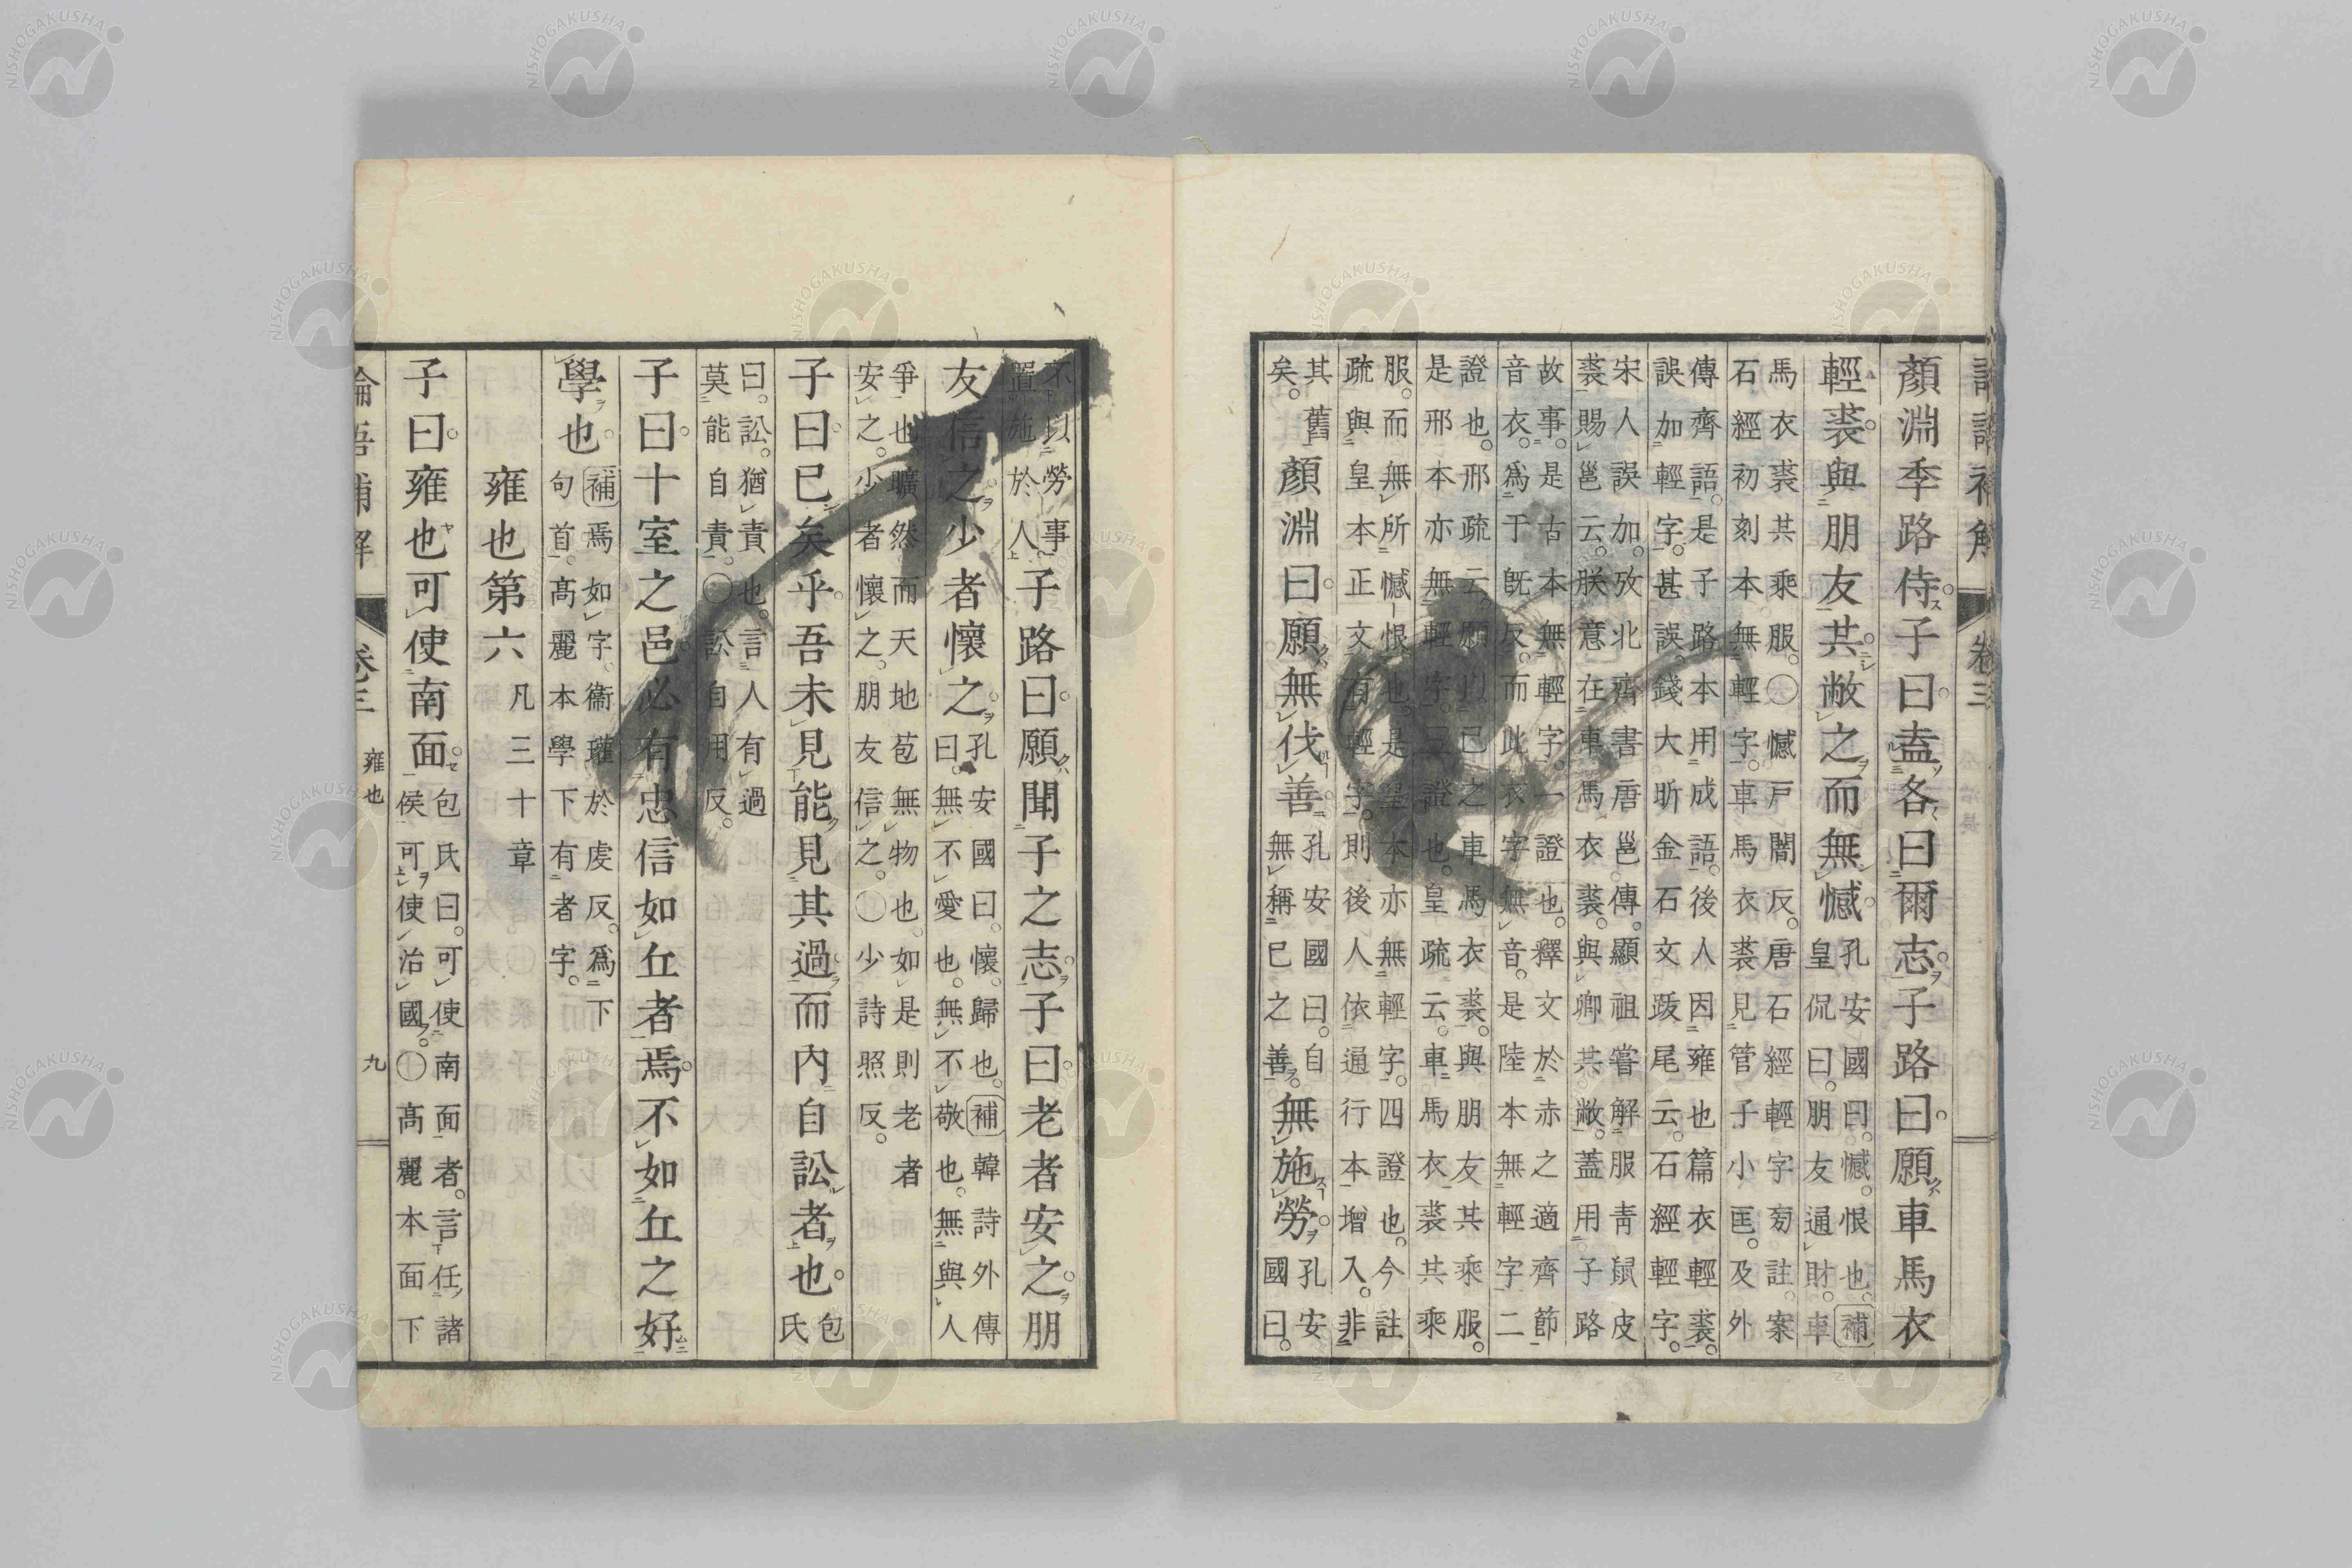 顏淵季路侍子曰盍各曰爾志子路曰願車馬衣
輕裘與朋友共敝之而無憾孔安國曰憾恨也補
皇侃曰朋友通財車
馬衣裘共乘服○憾戸闇反唐石經輕字㫄註案
石經初刻本無輕字車馬衣裘見管子小匡及外
傳齊語是子路本用成語後人因雍也篇衣輕裘
誤加輕字甚誤錢大昕金石文跋尾云石經輕字
宋人誤加攷北齊書唐邕傳顯祖嘗解服青鼠皮
裘賜邕云朕意在車馬衣裘與卿共敝蓋用子路
故事是古本無輕字一證也釋文於赤之適齊節
音衣爲于旣反而此衣字無音是陸本無輕字二
證也邢疏云願以己之車馬衣裘與朋友共乘服
是邢本亦無輕字三證也皇疏云車馬衣裘共乘
服而無所憾恨也是皇本亦無輕字四證也今註
疏與皇本正文有輕字則後人依通行本增入非
其舊
矣
顏淵曰願無伐善孔安國曰自
無稱已之善無施勞孔安
國曰
不以勞事
置施於人子路曰願聞子之志子曰老者安之朋
友信之少者懷之孔安國曰懷歸也補韓詩外傳
曰無不愛也無不敬也無與人
爭也曠然而天地苞無物也如是則老者
安之少者懷之朋友信之○少詩照反
子曰已矣乎吾未見能見其過而內自訟者也包
氏
曰訟猶責也言人有過
莫能自責○訟自用反
子曰十室之邑必有忠信如丘者焉不如丘之好
學也補焉如字衞瓘於虔反爲下
句首高麗本學下有者字
雍也第六凡三十章
子曰雍也可使南面包氏曰可使南面者言任諸
侯可使治國○高麗本面下
論語補解
卷三
雍也
九
卷三
NISHOGAKUSHA